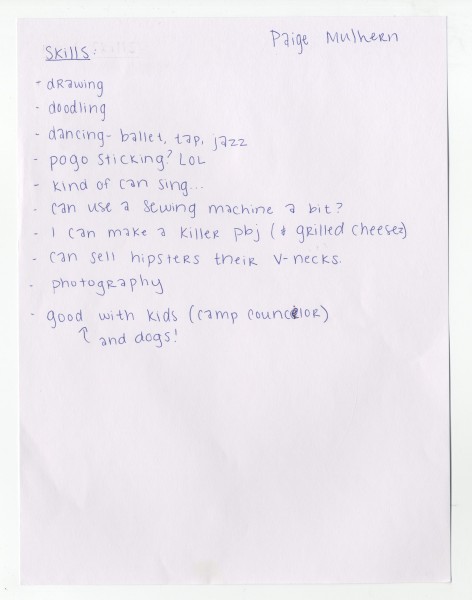 Paige Mulhern
Skills:
- drawing
- doodling
- dancing- ballet, tap, jazz
- pogo sticking? LOL
- kind of can sing...
- can use a sewing machine a bit?
- I can make a killer pbj (& grilled cheesez)
- can sell hipsters their v-necks.
- photography
- good with kids (camp councelor)
↑ and dogs!